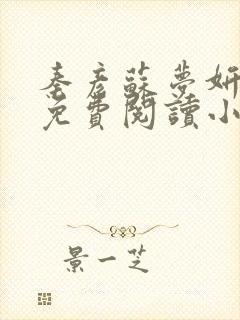 秦彥蘇夢妍
免費閱讀小
景一芝